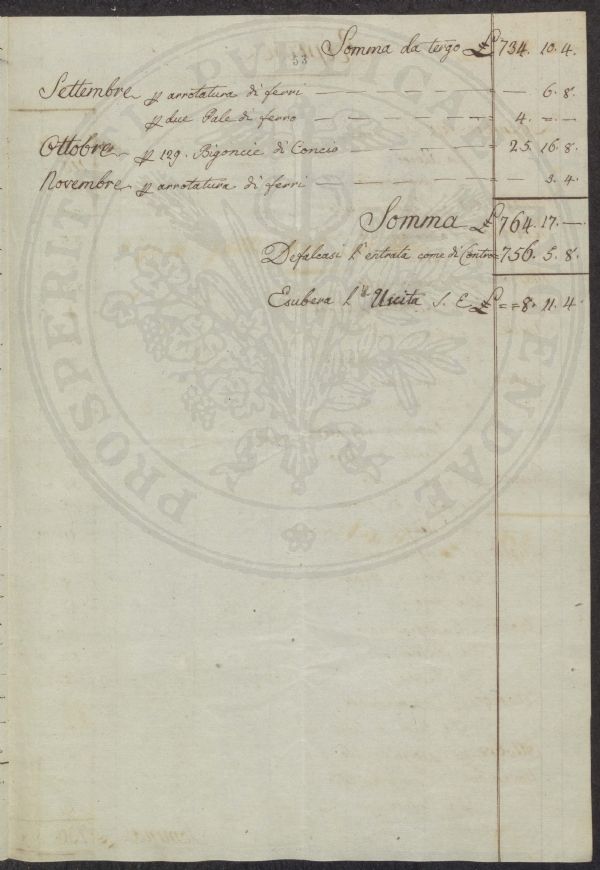 53
Somma da tergo £ 734. 10. 4.
Settembre p arrotatura di ferri — — — — — — = — 6. 8.
p due Pale di ferro — — — — — — 4. = . —
Ottobre p 129. Bigoncie di Concio — — — — 25. 16. 8.
Novembre p arrotatura di ferri — — — — — = — 3. 4.
Somma £ 764. 17. —
Defalcasi l'entrata come di Contro = 756. 5. 8.
Esubera l'Uscita S. E. £ = = 8. 11. 4
PROSPERITATI PUBLICAE AUGENDAE